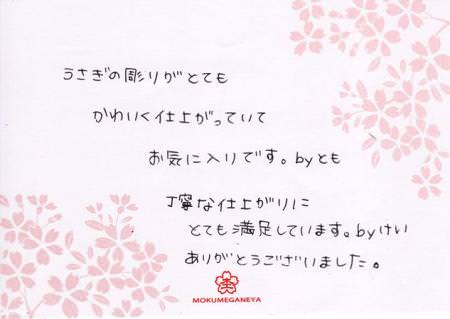 うさぎの彫りがとても
かわいく仕上がっていて
お気に入りです。byとも
丁寧な仕上がりに
とても満足しています。byけい
ありがとうございました。
MOKUMEGANEYA